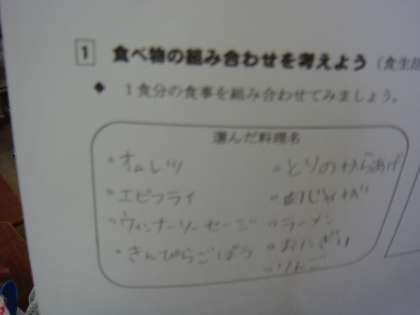 1 食べ物の組み合わせを考えよう(食生活
◆ 1食分の食事を組み合わせてみましょう。
選んだ料理名
・オムレツ ・とりのからあげ
・エビフライ ・肉じゃが
・ウィンナーソーセージ ・ラーメン
・きんぴらごぼう ・おにぎり
・りんご